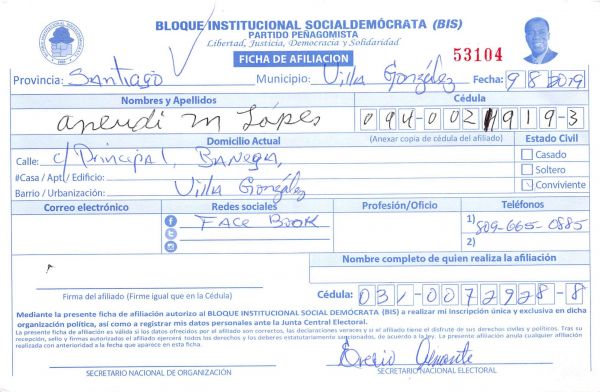 BLOQUE INSTITUCIONAL SOCIALDEMÓCRATA (BIS)
PARTIDO PEÑAGOMISTA
Libertad, Justicia, Democracia y Solidaridad
FICHA DE AFILIACION
53104
Provincia: Santiago Municipio: Villa González Fecha: 9 8 2019
Nombres y Apellidos Cédula
apendi m Lopes 094-002 1919-3
Domicilio Actual (Anexar copia de cédula del afiliado) Estado Civil
Calle: c/ Principal, Banega, Casado
#Casa / Apt / Edificio: Soltero
Barrio / Urbanización: Villa González Conviviente
Correo electrónico Redes sociales Profesión/Oficio Teléfonos
FACE BOOK 1) 809-665-0885
2)
Nombre completo de quien realiza la afiliación
Firma del afiliado (Firme igual que en la Cédula) Cédula: 031-0072928-8
Mediante la presente ficha de afiliación autorizo al BLOQUE INSTITUCIONAL SOCIAL DEMÓCRATA (BIS) a realizar mi inscripción única y exclusiva en dicha
organización política, así como a registrar mis datos personales ante la Junta Central Electoral.
La presente ficha de afiliación es válida si los datos ofrecidos por el afiliado son correctos, las declaraciones veraces y si el afiliado tiene el disfrute de sus derechos civiles y políticos. Tras su
recepción, sello y firmas autorizados el afiliado ejercerá todos los derechos y los deberes estatutariamente sancionados, de acuerdo a la ley. La presente afiliación anula cualquier afiliación
realizada con anterioridad a la fecha que aparece en esta ficha.
Almonte
SECRETARIO NACIONAL DE ORGANIZACIÓN SECRETARIO NACIONAL ELECTORAL